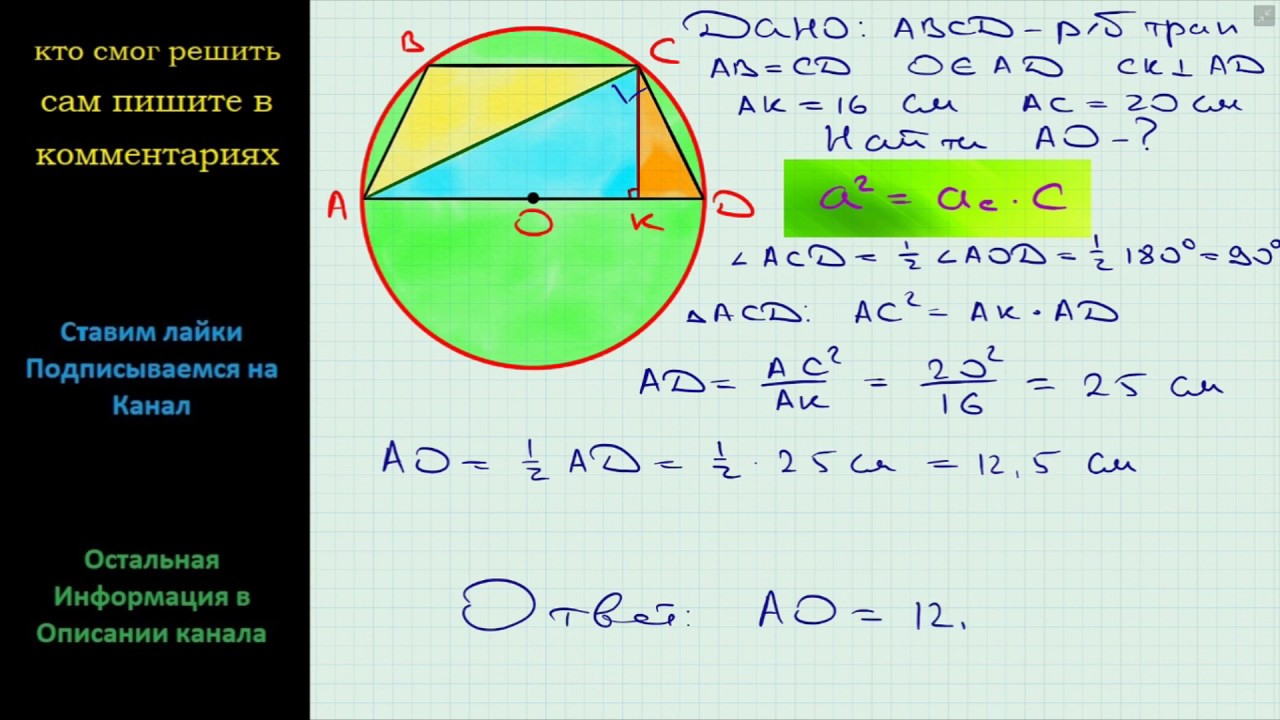 кто смог решить
сам пишите в
комментариях
Ставим лайки
Подписываемся на
Канал
Остальная
Информация в
Описании канала
B
C
A
O
K
D
Дано: ABCD – р/б трап
AB = CD O ∈ AD CK ⊥ AD
AK = 16 см AC = 20 см
Найти AO – ?
a² = a_c · c
∠ACD = 1/2 ∠AOD = 1/2 180° = 90°
△ACD: AC² = AK · AD
AD = AC²/AK = 20²/16 = 25 см
AO = 1/2 AD = 1/2 · 25 см = 12,5 см
Ответ: AO = 12,